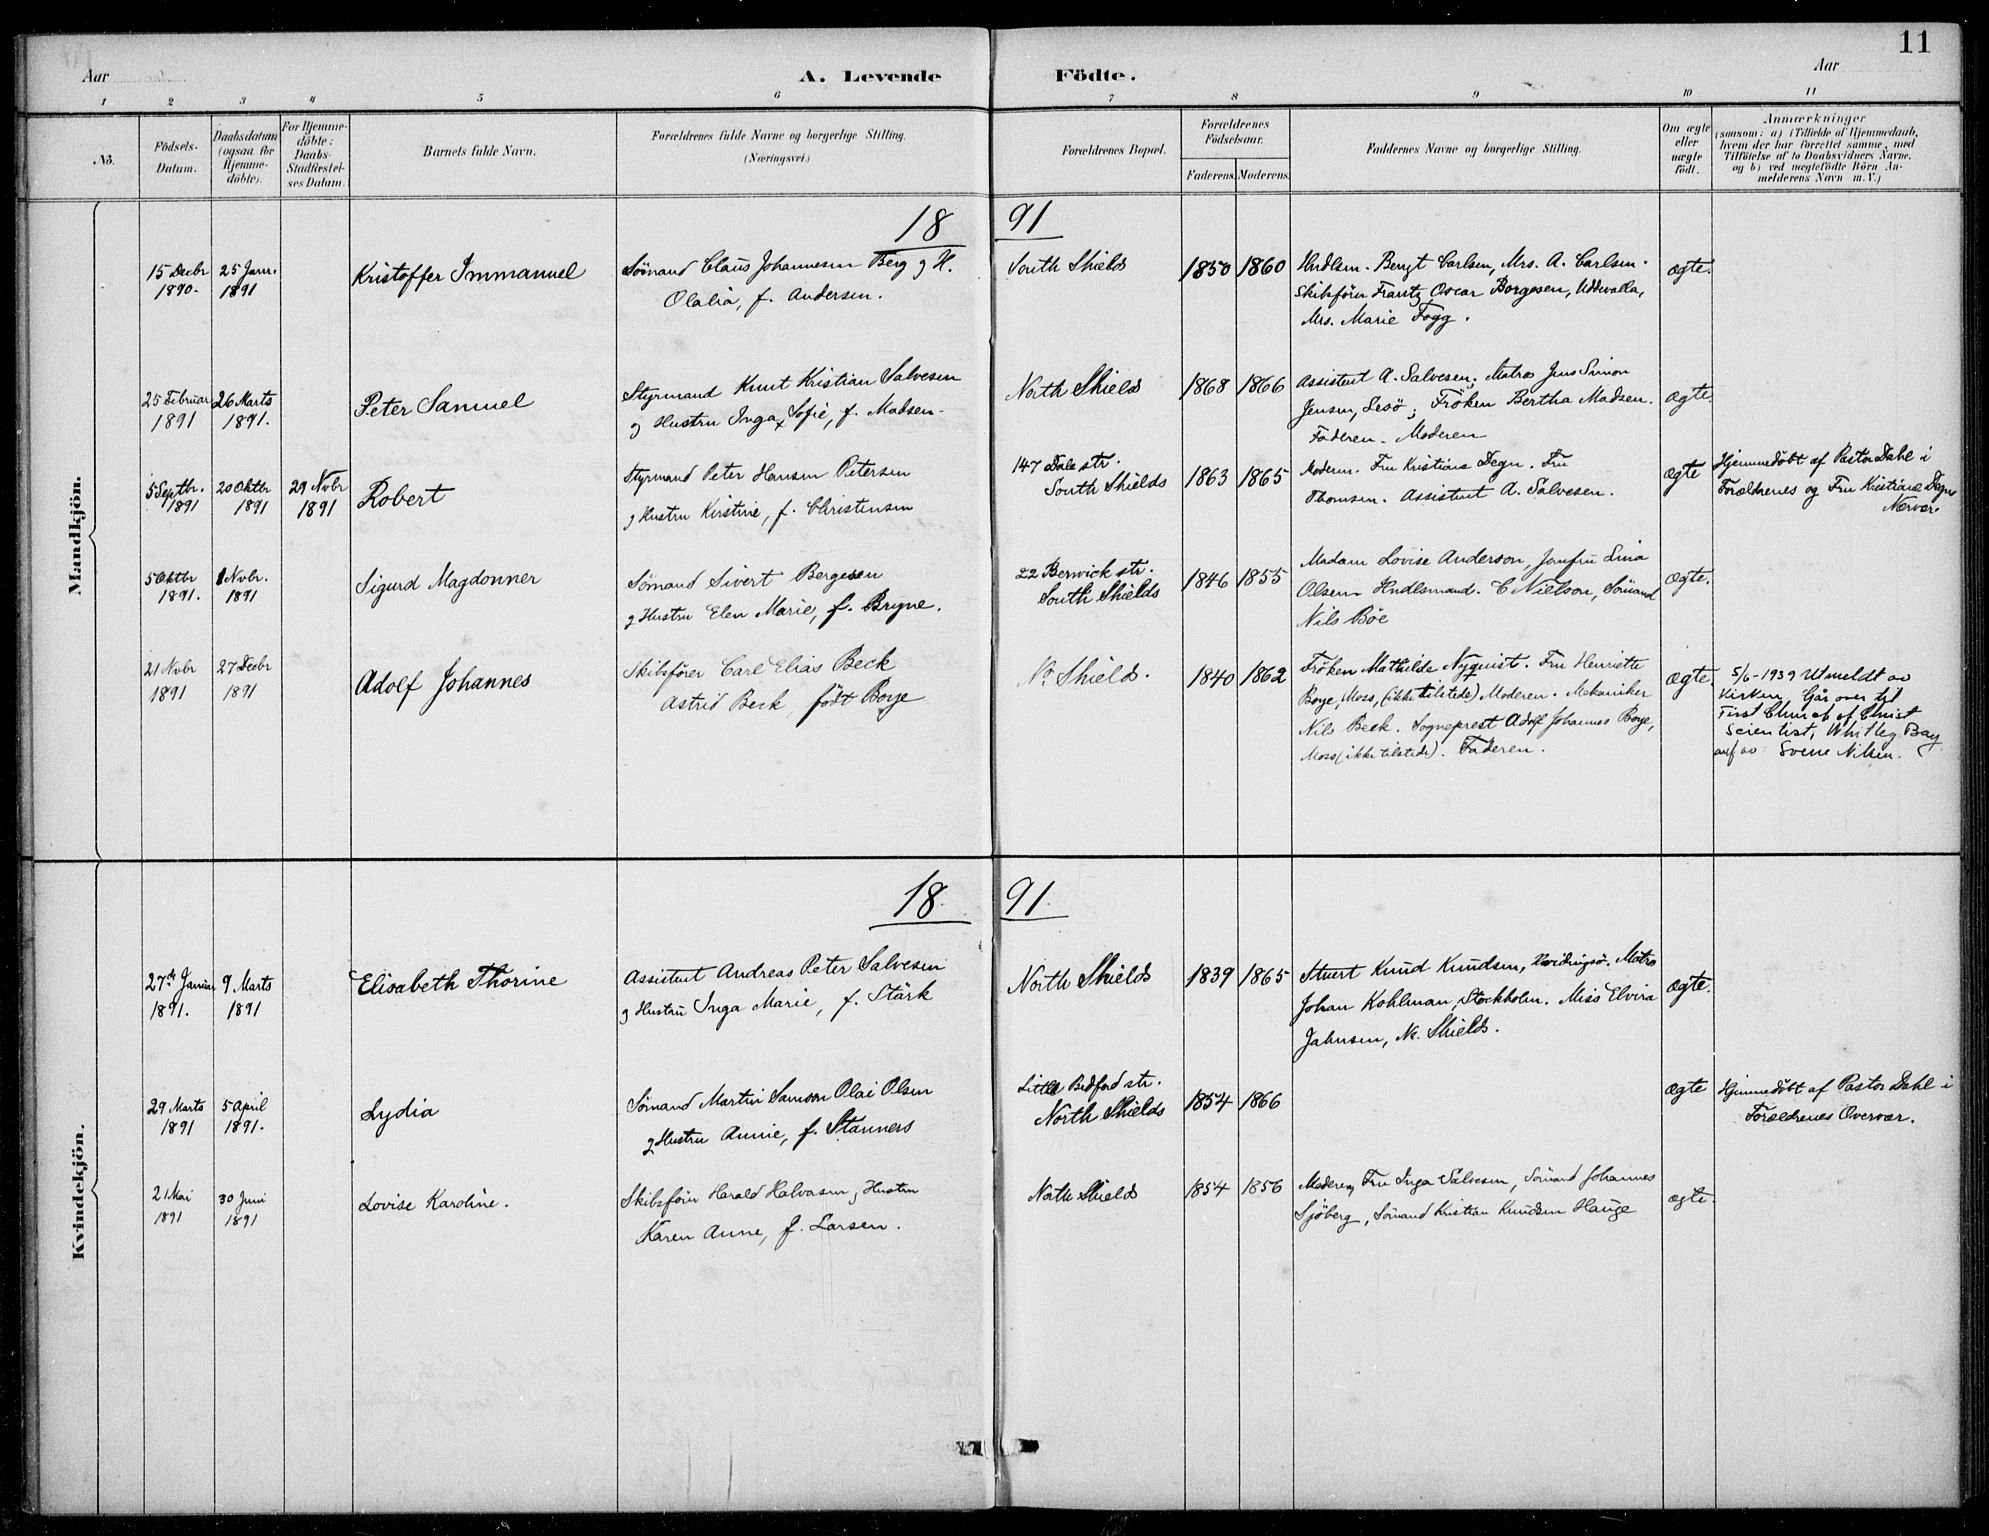 11
Aar
A. Levende
Födte.
Aar
1 2 3 4 5 6 7 8 9 10 11
No.
Födsels-
Datum.
Daabsdatum
(ogsaa for
Hjemme-
döbte).
For Hjemme-
döbte:
Daabs-
Stadfæstel-
ses Datum.
Barnets fulde Navn.
Forældrenes fulde Navne og borgerlige Stilling.
(Næringsvei.)
Forældrenes Bopæl.
Forældrenes
Födselsaar.
Faderens. Moderens.
Faddernes Navne og borgerlige Stilling.
Om ægte
eller
uægte
födt.
Anmærkninger
(saasom: a) i Tilfælde af Hjemmedaab,
hvem der har forrettet samme, med
Tilföielse af to Daabsvidners Navne,
og b) ved uægtefödte Börn An-
melderens Navn m. V.)
Mandkjön.
18 91
15 Decbr
1890.
25 Janr.
1891
Kristoffer Immanuel
Sömand Claus Johannesen Berg og H.
Olalia, f. Andersen.
South Shields
1850 1860
Hndlsm. Bengt Carlsen, Mrs. A. Carlsen.
Skibsförer Frantz Oscar Borgesen, Uddevalla,
Mrs. Marie Fogg.
ægte.
25 Februar
1891
26 Marts
1891.
Peter Samuel
Styrmand Knut Kristian Salvesen
og Hustru Inga Sofie, f. Madsen.
North Shields
1868 1866
Assistent A. Salvesen, Matros Jens Simon
Jensen, Lesö; Fröken Bertha Madsen.
Faderen. Moderen
ægte.
5 Septbr.
1891
20 Oktbr
1891
29 Novbr
1891
Robert
Styrmand Peter Hansen Petersen
og Hustru Kirstine, f. Christensen
147 Dale str.
South Shields
1863 1865
Moderen. Fru Kristiane Degn. Fru
Thomsen. Assistent A. Salvesen.
ægte
Hjemmedöbt af Pastor Dahl i
Forældrenes og Fru Kristiane Degns
Nærvær.
5 Oktbr
1891.
1 Nvbr.
1891
Sigurd Magdonner
Sömand Sivert Bergesen
og Hustru Elen Marie, f. Bryne.
22 Berwick str.
South Shields
1846 1855
Madam Lovise Anderson, Jomfru Lina
Olsen. Hndlsmand. C Nielson, Sömand
Nils Böe
ægte.
21 Nvbr
1891
27 Decbr
1891
Adolf Johannes
Skibsförer Carl Elias Beck
Astrid Beck, födt Boye
No. Shields.
1840 1862
Fröken Mathilde Nyquist. Fru Henriette
Boye, Moss, (ikke tilstede) Moderen. Mekaniker
Nils Beck. Sogneprest Adolf Johannes Boye,
Moss (ikke tilstede). Faderen.
ægte.
5/6-1939 Utmeldt av
Kirken. Går over til
First Church of Christ
Scientist, Whitley Bay
Sverre Nilsen.
Kvindekjön.
18 91
27de Januar
1891.
9 Marts
1891
Elisabeth Thorine
Assistent Andreas Peter Salvesen
og Hustru Inga Marie, f. Stärk
North Shields
1839 1865
Stuert Knud Knudsen, Hvidingsö. Matros
Johan Kohlman, Stockholm. Miss Elvira
Jahnsen, No. Shields.
ægte.
29 Marts
1891
5 April
1891.
Lydia
Sömand Martin Samson Olai Olsen
og Hustru Annie, f. Stanners
Little Bedford str.
North Shields
1854 1866
ægte
Hjemmedöbt af Pastor Dahl i
Forældrenes Overvær.
21 Mai
1891
30 Juni
1891
Lovise Karoline.
Skibsförer Harald Halvorsen og Hustru
Karen Anne, f. Larsen.
North Shields
1854 1856
Moderen, Fru Inga Salvesen, Sömand Johannes
Sjöberg, Sömand Kristian Knudsen Hauge
ægte.